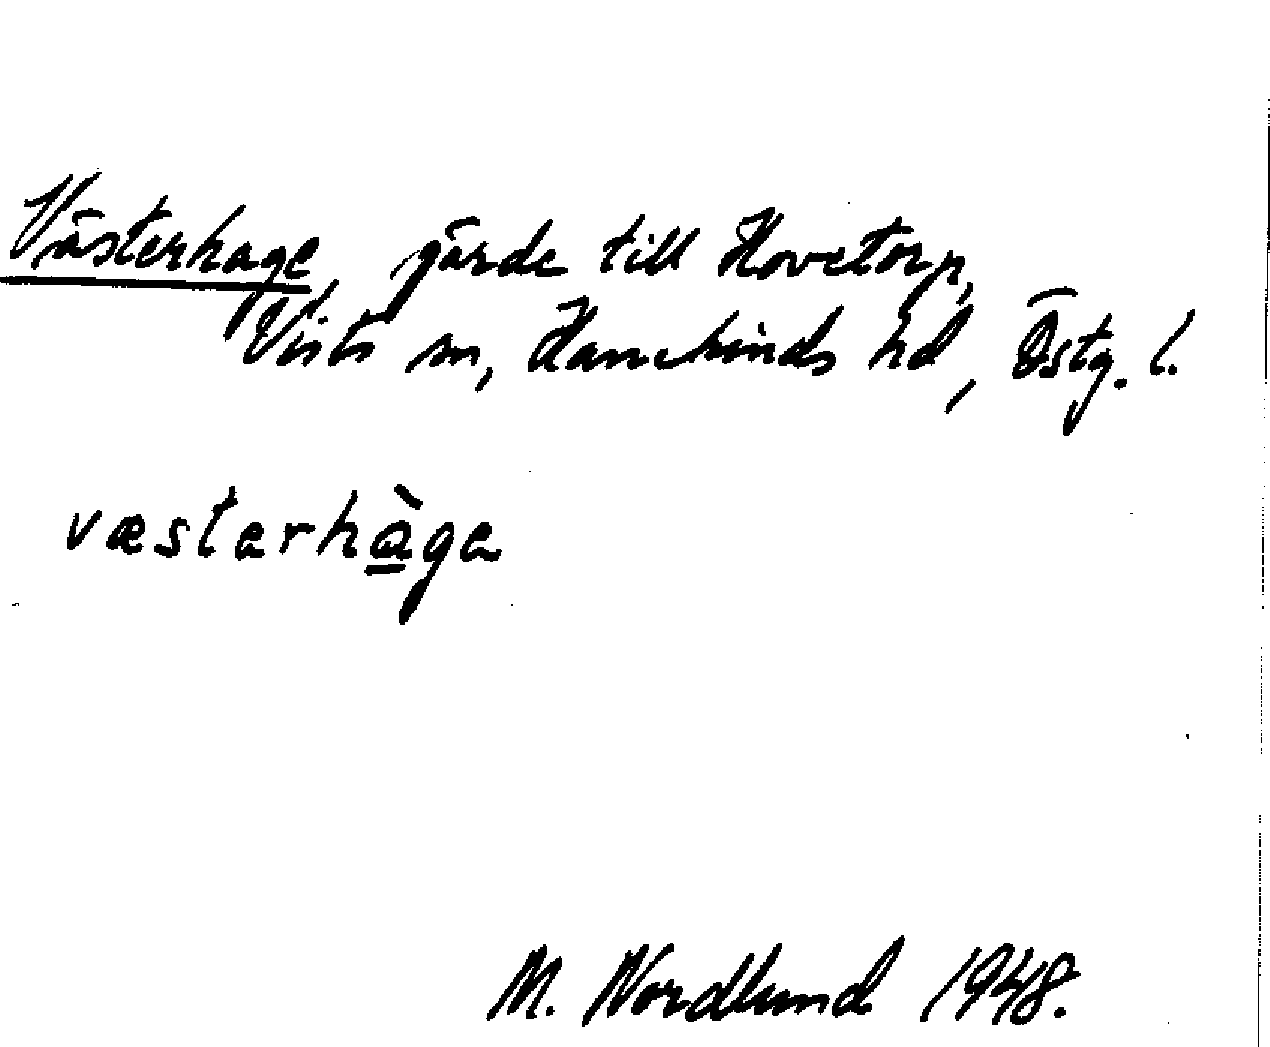 Västerhage, gärde till Hovetorp,
Vists sn, Hanekinds hd, Östg. l.
væstərhàgə
M. Nordlund 1948.